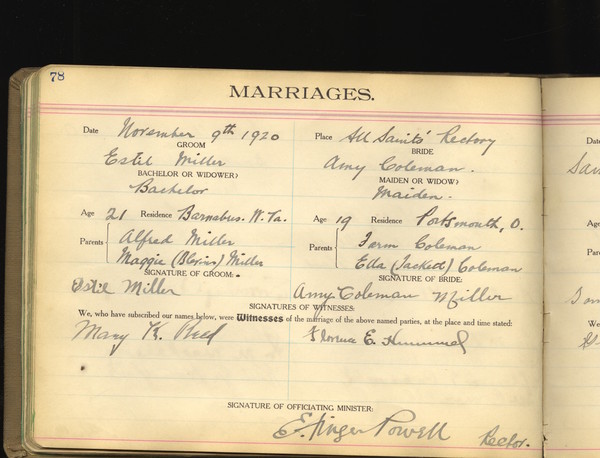 78
MARRIAGES.
Date November 9th 1920 Place All Saints' Rectory
GROOM BRIDE
Estil Miller Amy Coleman.
BACHELOR OR WIDOWER? MAIDEN OR WIDOW?
Bachelor Maiden.
Age 21 Residence Barnabus. W. Va. Age 19 Residence Portsmouth, O.
Parents Alfred Miller Parents Coleman
Maggie Miller Ella Coleman
SIGNATURE OF GROOM: SIGNATURE OF BRIDE:
Estil Miller Amy Coleman Miller
SIGNATURES OF WITNESSES:
We, who have subscribed our names below, were Witnesses of the marriage of the above named parties, at the place and time stated:
Mary K. Florence E.
SIGNATURE OF OFFICIATING MINISTER:
E. Powell Rector.